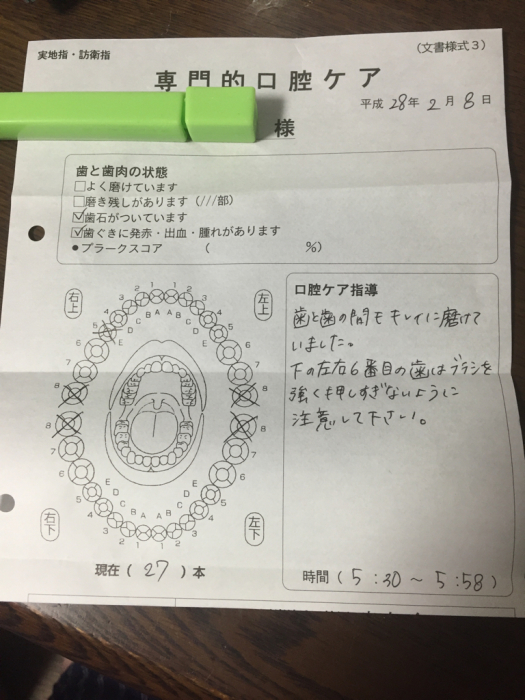 実地指・訪衛指
（文書様式３）
専門的口腔ケア
平成 28年 2月 8日
様
歯と歯肉の状態
□よく磨けています
□磨き残しがあります（///部）
☑歯石がついています
☑歯ぐきに発赤・出血・腫れがあります
●プラークスコア （ %）
右上
左上
8 7 6 5 4 3 2 1 1 2 3 4 5 6 7 8
E D C B A A B C D E
E D C B A A B C D E
8 7 6 5 4 3 2 1 1 2 3 4 5 6 7 8
右下
左下
現在（ 27 ）本
口腔ケア指導
歯と歯の間もキレイに磨けて
いました。
下の左右6番目の歯はブラシを
強く押しすぎないように
注意して下さい。
時間（ 5:30 ～ 5:58 ）